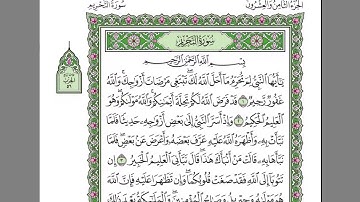 الجزء الثامن والعشرون
سورة التحريم
سورة التحريم
بسم الله الرحمن الرحيم
يَٰٓأَيُّهَا ٱلنَّبِىُّ لِمَ تُحَرِّمُ مَآ أَحَلَّ ٱللَّهُ لَكَ تَبْتَغِى مَرْضَاتَ أَزْوَٰجِكَ وَٱللَّهُ
غَفُورٌ رَّحِيمٌ ١ قَدْ فَرَضَ ٱللَّهُ لَكُمْ تَحِلَّةَ أَيْمَٰنِكُمْ وَٱللَّهُ مَوْلَىٰكُمْ وَهُوَ
ٱلْعَلِيمُ ٱلْحَكِيمُ ٢ وَإِذْ أَسَرَّ ٱلنَّبِىُّ إِلَىٰ بَعْضِ أَزْوَٰجِهِۦ حَدِيثًا فَلَمَّا
نَبَّأَتْ بِهِۦ وَأَظْهَرَهُ ٱللَّهُ عَلَيْهِ عَرَّفَ بَعْضَهُۥ وَأَعْرَضَ عَنۢ بَعْضٍ فَلَمَّا
نَبَّأَهَا بِهِۦ قَالَتْ مَنْ أَنۢبَأَكَ هَٰذَا قَالَ نَبَّأَنِىَ ٱلْعَلِيمُ ٱلْخَبِيرُ ٣ إِن
تَتُوبَآ إِلَى ٱللَّهِ فَقَدْ صَغَتْ قُلُوبُكُمَا وَإِن تَظَٰهَرَا عَلَيْهِ فَإِنَّ ٱللَّهَ
هُوَ مَوْلَىٰهُ وَجِبْرِيلُ وَصَٰلِحُ ٱلْمُؤْمِنِينَ وَٱلْمَلَٰٓئِكَةُ بَعْدَ ذَٰلِكَ